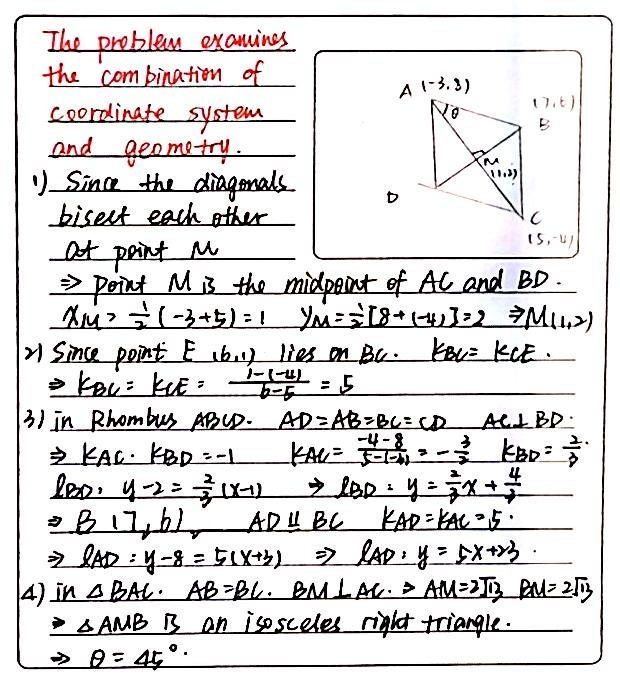 The problem examines
the combination of
coordinate system
and geometry.
A (-3,8)
θ
(7,6)
B
M
(1,2)
D
C
(5,-4)
1) Since the diagonals
bisect each other
at point M
⇒ point M is the midpoint of AC and BD.
xM = 1/2(-3+5)=1 yM=1/2[8+(-4)]=2 ⇒M(1,2)
2) Since point E (6,1) lies on BC. KBC= KCE.
⇒ KBC= KCE = 1-(-4)/6-5 = 5
3) in Rhombus ABCD. AD=AB=BC=CD AC⊥BD.
⇒ KAC·KBD=-1 KAC= -4-8/5-(-3) = -3/2 KBD= 2/3.
lBD: y-2= 2/3(x-1) ⇒ lBD: y= 2/3x+4/3
⇒ B (7,6), AD∥BC KAD=KAC=5.
⇒ lAD: y-8=5(x+3) ⇒ lAD: y=5x+23.
4) in △BAC. AB=BC. BM⊥AC.⇒ AM=2√13 BM=2√13
⇒ △AMB is an isosceles right triangle.
⇒ θ=45°.